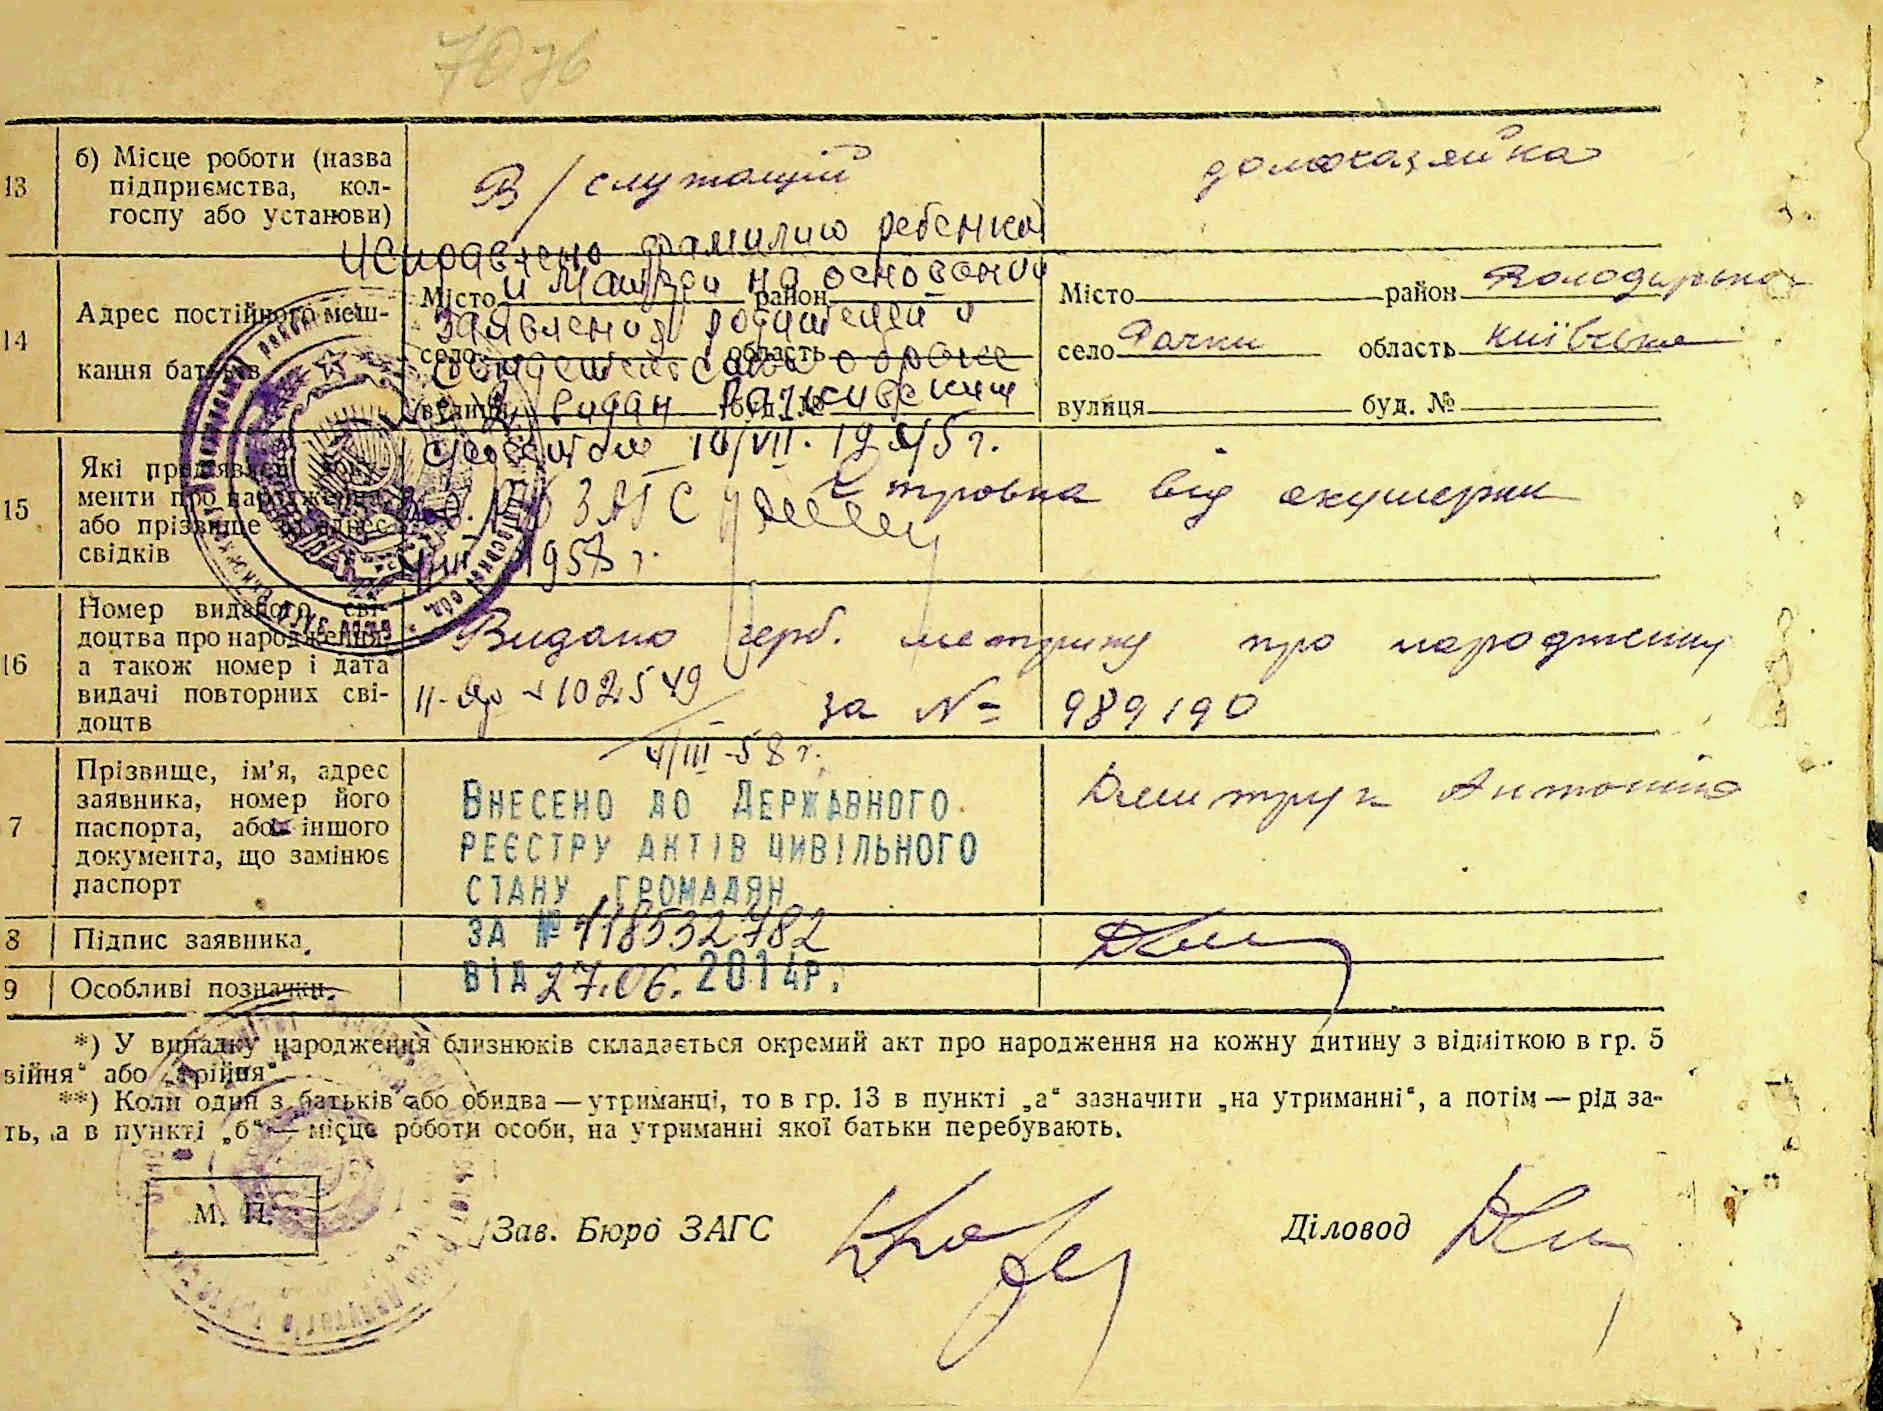 7076
13
б) Місце роботи (назва
підприємства, кол-
госпу або установи)
В/служащий
домохазяйка
Исправлено фамилию ребенка
и матери на основании
заявления родителей и
свидетельства о браке
видан Рачкивским
10/VII. 1945 г.
ЗАГС
1958 г.
14
Адрес постійного меш-
кання батьків
Місто район
село область
вулиця буд. №
Місто район Володарська
село Рачки область Київська
вулиця буд. №
15
Які пред'явлені доку-
менти про народження
або прізвище та адрес
свідків
від акушерки
16
Номер виданого сві-
доцтва про народження,
а також номер і дата
видачі повторних сві-
доцтв
Видано герб. метрику про народження
за № 989190
102549
4/III-58 г.
7
Прізвище, ім'я, адрес
заявника, номер його
паспорта, або іншого
документа, що замінює
паспорт
Дмитрук Антоніна
ВНЕСЕНО ДО ДЕРЖАВНОГО
РЕЄСТРУ АКТІВ ЦИВІЛЬНОГО
СТАНУ ГРОМАДЯН
ЗА № 118532782
ВІД 27.06.2014р.
8
Підпис заявника.
9
Особливі позначки.
*) У випадку народження близнюків складається окремий акт про народження на кожну дитину з відміткою в гр. 5
війня“ або „трійня“
**) Коли один з батьків або обидва — утриманці, то в гр. 13 в пункті „а“ зазначити „на утриманні“, а потім — рід за-
ть, а в пункті „б“ — місце роботи особи, на утриманні якої батьки перебувають.
М. П.
Зав. Бюро ЗАГС
Діловод